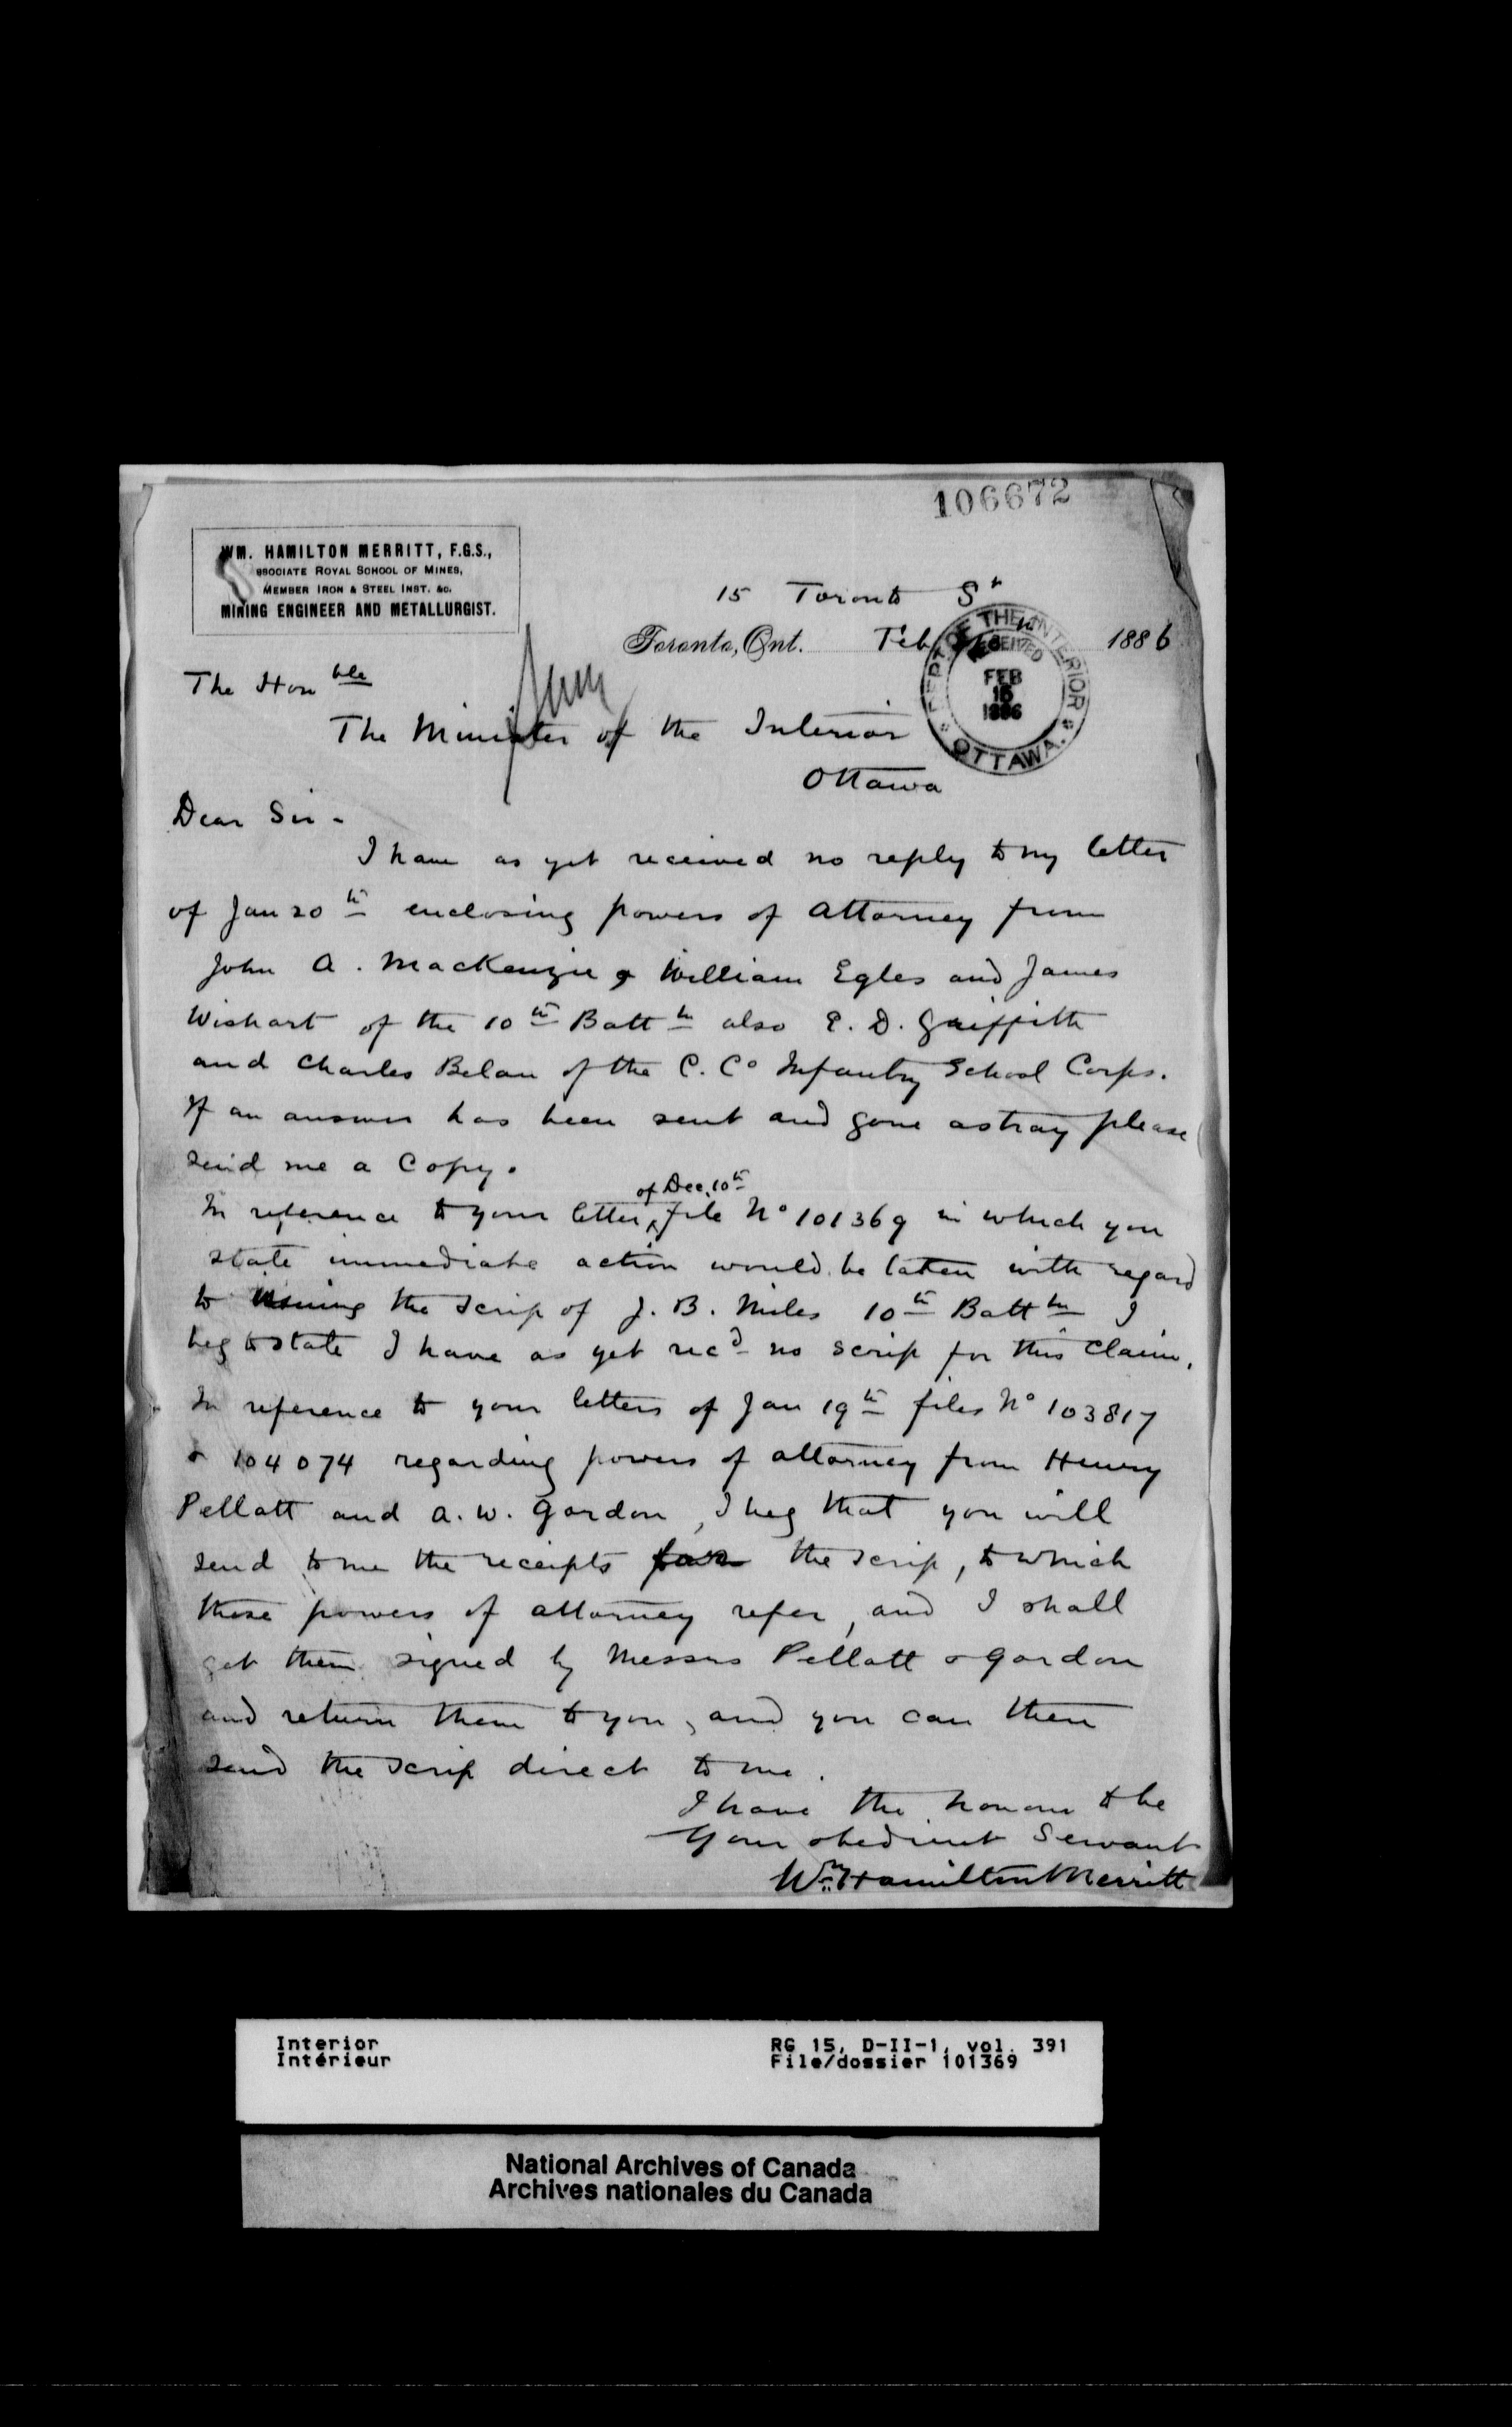 106672
WM. HAMILTON MERRITT, F.G.S.,
SSOCIATE ROYAL SCHOOL OF MINES,
MEMBER IRON & STEEL INST. &C.
MINING ENGINEER AND METALLURGIST.
15 Toronto St
Toronto, Ont. Feb 1886
DEPT. OF THE INTERIOR
RECEIVED
FEB
16
1886
OTTAWA.
The Honble
The Minister of the Interior
Ottawa
Dear Sir -
I have as yet received no reply to my letter
of Jan 20th enclosing powers of Attorney from
John A. MacKenzie & William Egles and James
Wishart of the 10th Battn also E. D. Griffith
and Charles Belau of the C. Co Infantry School Corps.
If an answer has been sent and gone astray please
send me a Copy.
In reference to your letter of Dec. 10th file No 101369 in which you
state immediate action would be taken with regard
to issuing the scrip of J. B. Miles 10th Battn I
beg to state I have as yet recd no scrip for this claim.
In reference to your letters of Jan 19th files No 103817
& 104074 regarding powers of attorney from Henry
Pellatt and A. W. Gordon, I beg that you will
send to me the receipts for the scrip, to which
these powers of attorney refer, and I shall
get them signed by Messrs Pellatt & Gordon
and return them to you, and you can then
send the scrip direct to me.
I have the honour to be
Your obedient Servant
Wm Hamilton Merritt
Interior
Intérieur
RG 15, D-II-1, vol. 391
File/dossier 101369
National Archives of Canada
Archives nationales du Canada